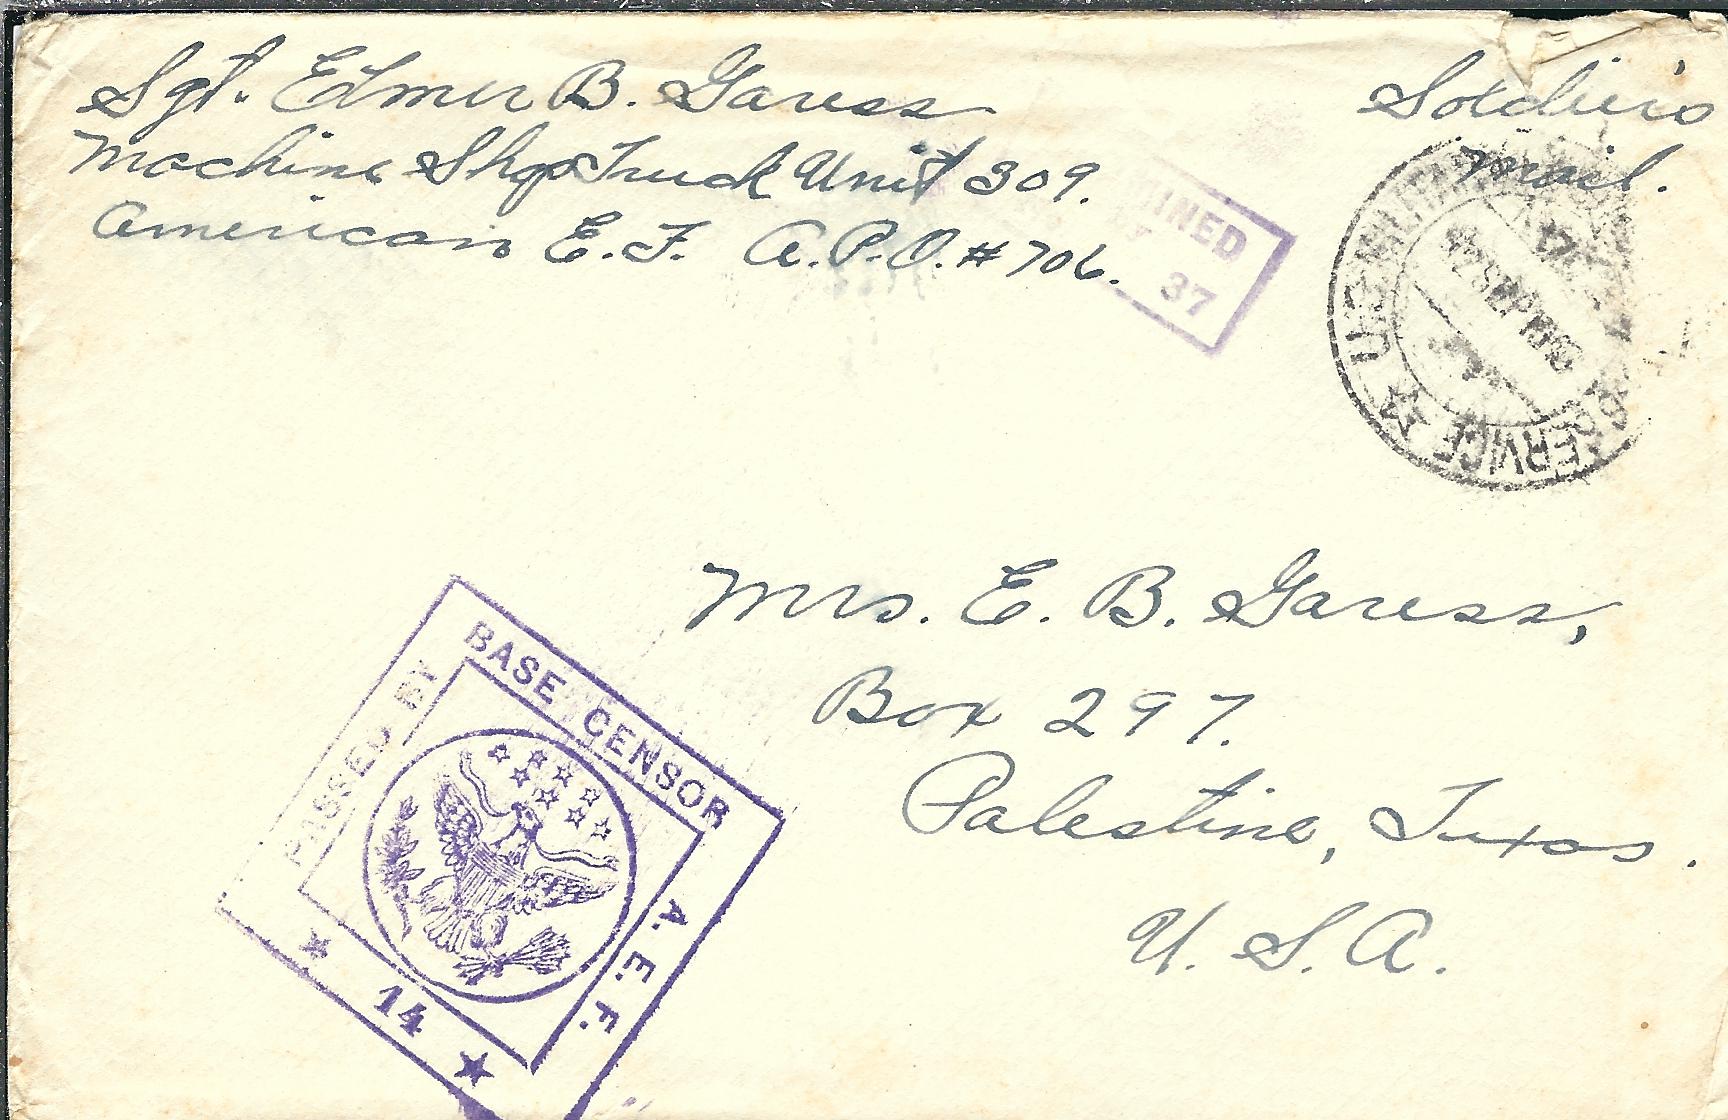 Sgt. Elmer B. Garess
Machine Shop Truck Unit 309.
American E. F. A.P.O. # 706.
Soldiers
Mail.
37
U.S. MILITARY
SERVICE
SEP
Mrs. E. B. Garess,
Box 297.
Palestine, Texas.
U. S. A.
PASSED BY
BASE CENSOR
A. E. F.
14